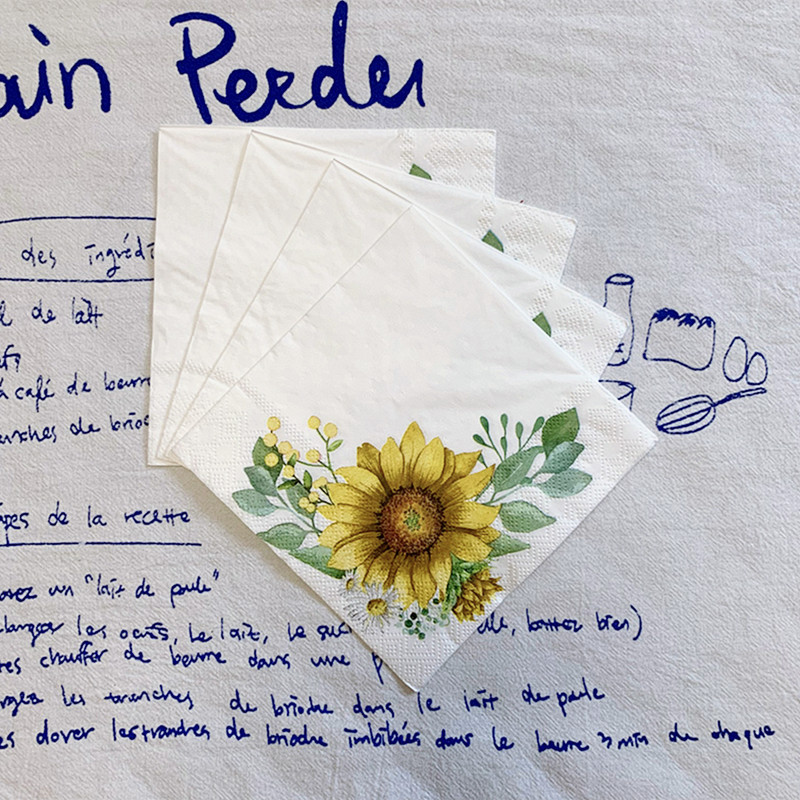 ain Perdu
des ingrédi
de lait
à café de beurre
anches de brio
apes de la recette
arez un "lait de poule"
langer les oeufs, Le lait, Le suc lle, battez bien)
tes chauffer de beurre dans une p
rgez les tranches de brioche dans le lait de poule
es dorer les tranches de brioche imbibées dans le beurre 3 min de chaque